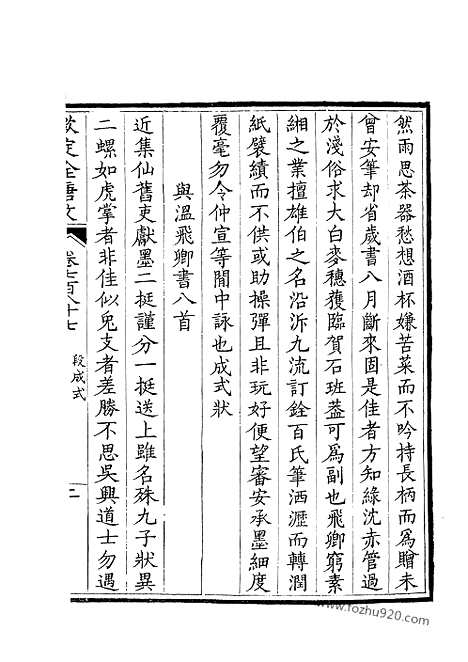 然雨思茶器愁想酒杯嫌苦菜而不吟持長柄而爲贈未
曾安筆却省歲書八月斷來固是佳者方知綠沈赤管過
於淺俗求大白麥穗獲臨賀石班葢可爲副也飛卿窮素
緗之業擅雄伯之名沿泝九流訂銓百氏筆洒瀝而轉潤
紙襞績而不供或助操彈且非玩好便望審安承墨細度
覆毫勿令仲宣等閒中詠也成式狀
與溫飛卿書八首
近集仙舊吏獻墨二挺謹分一挺送上雖名殊九子狀異
二螺如虎掌者非佳似兔支者差勝不思吳興道士勿遇
欽定全唐文
卷七百八十七
段成式
二
www.fozhu920.com